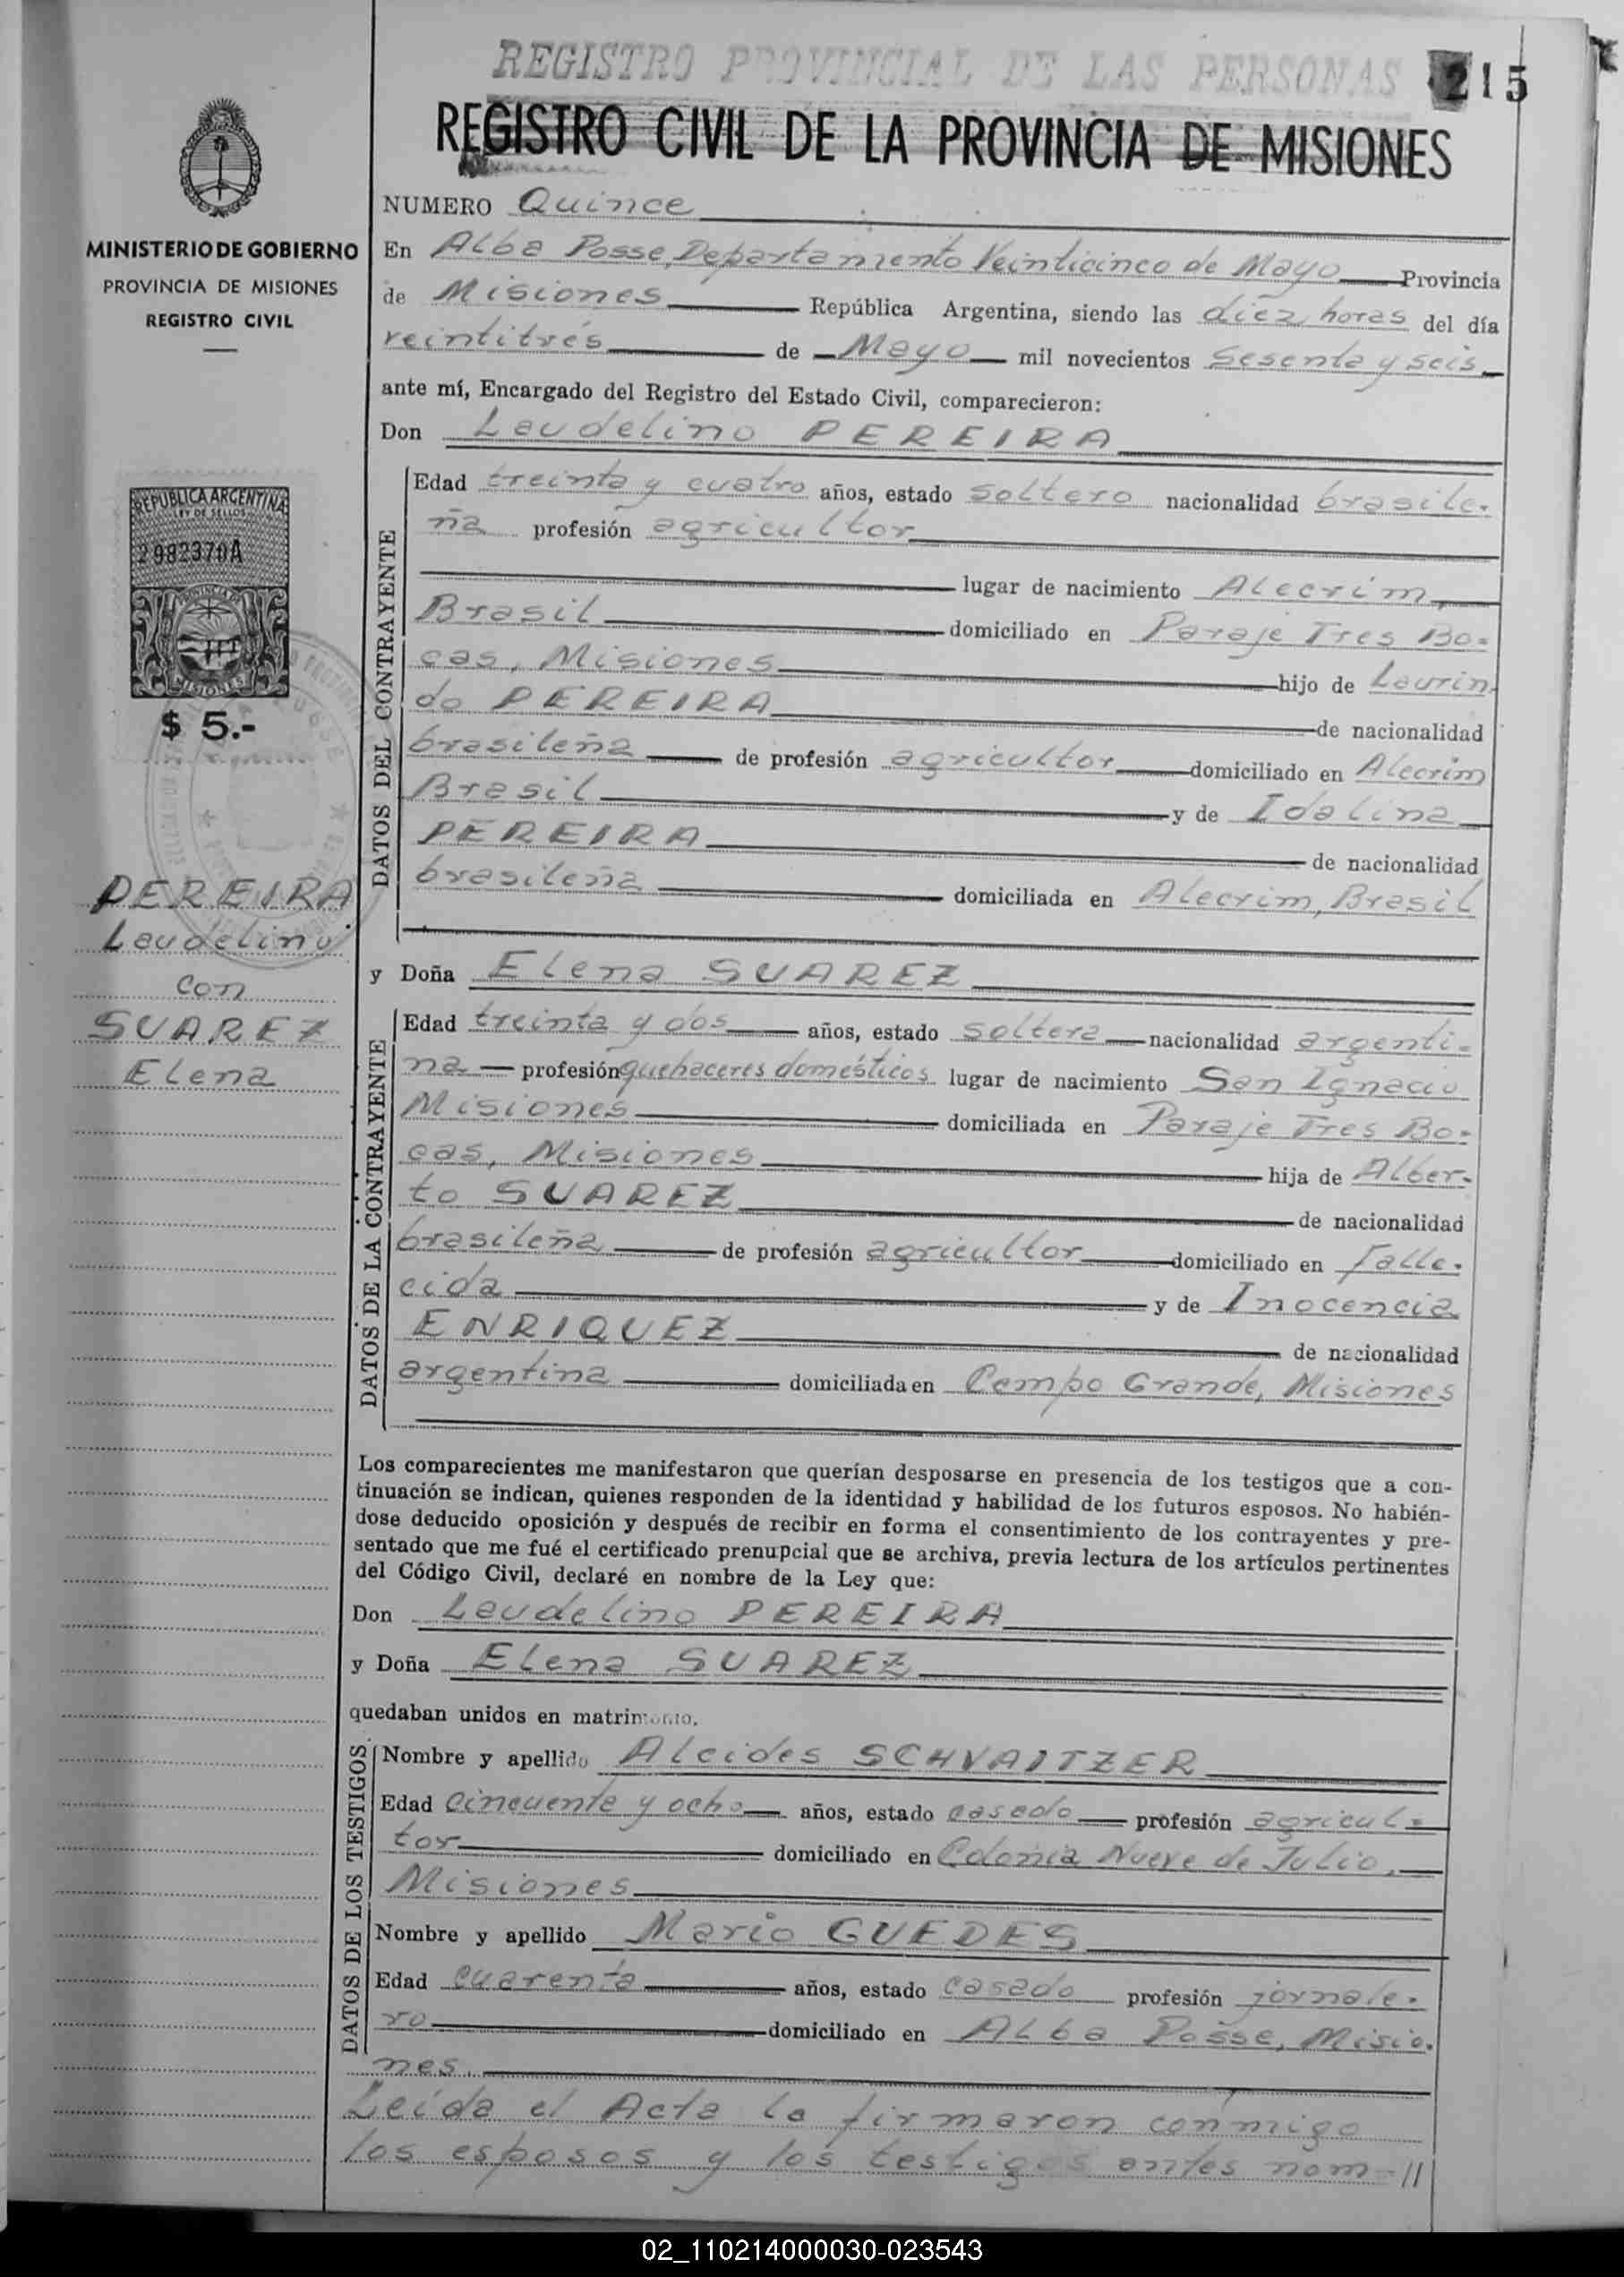 REGISTRO PROVINCIAL DE LAS PERSONAS 215
REGISTRO CIVIL DE LA PROVINCIA DE MISIONES
MINISTERIO DE GOBIERNO
PROVINCIA DE MISIONES
REGISTRO CIVIL
REPUBLICA ARGENTINA
LEY DE SELLOS
2982370A
PROVINCIA DE
MISIONES
$ 5.-
PEREIRA
Laudelino
con
SUAREZ
Elena
NUMERO Quince
En Alba Posse, Departamento Veinticinco de Mayo Provincia
de Misiones República Argentina, siendo las diez horas del día
veintitrés de Mayo mil novecientos sesenta y seis
ante mí, Encargado del Registro del Estado Civil, comparecieron:
Don Laudelino PEREIRA
DATOS DEL CONTRAYENTE
Edad treinta y cuatro años, estado soltero nacionalidad brasile-
ña profesión agricultor
lugar de nacimiento Alecrim,
Brasil domiciliado en Paraje Tres Bo-
cas, Misiones hijo de Laurin-
do PEREIRA de nacionalidad
brasileña de profesión agricultor domiciliado en Alecrim
Brasil y de Idalina
PEREIRA de nacionalidad
brasileña domiciliada en Alecrim, Brasil
y Doña Elena SUAREZ
DATOS DE LA CONTRAYENTE
Edad treinta y dos años, estado soltera nacionalidad argenti-
na profesión quehaceres domésticos lugar de nacimiento San Ignacio
Misiones domiciliada en Paraje Tres Bo-
cas, Misiones hija de Alber-
to SUAREZ de nacionalidad
brasileña de profesión agricultor domiciliado en falle-
cida y de Inocencia
ENRIQUEZ de nacionalidad
argentina domiciliada en Campo Grande, Misiones
Los comparecientes me manifestaron que querían desposarse en presencia de los testigos que a con-
tinuación se indican, quienes responden de la identidad y habilidad de los futuros esposos. No habién-
dose deducido oposición y después de recibir en forma el consentimiento de los contrayentes y pre-
sentado que me fué el certificado prenupcial que se archiva, previa lectura de los artículos pertinentes
del Código Civil, declaré en nombre de la Ley que:
Don Laudelino PEREIRA
y Doña Elena SUAREZ
quedaban unidos en matrimonio.
DATOS DE LOS TESTIGOS
Nombre y apellido Alcides SCHVAITZER
Edad cincuenta y ocho años, estado casado profesión agricul-
tor domiciliado en Colonia Nueve de Julio,
Misiones
Nombre y apellido Mario GUEDES
Edad cuarenta años, estado casado profesión jornale-
ro domiciliado en Alba Posse, Misio-
nes.
Leída el Acta la firmaron conmigo
los esposos y los testigos antes nom-//
02_110214000030-023543